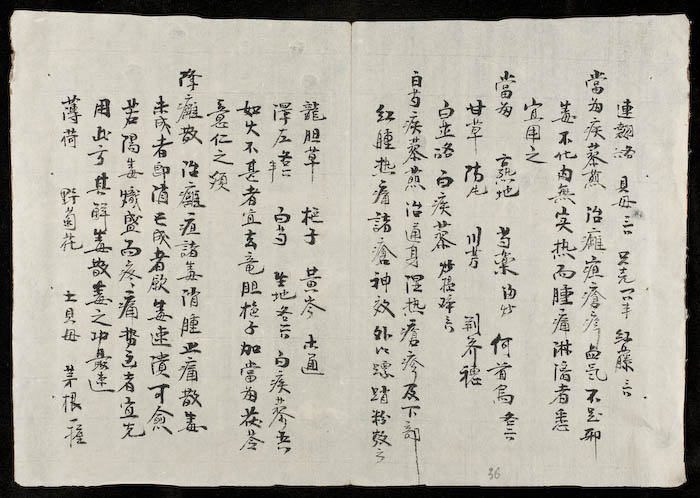 連翹 貝母 紅藤
當為疾藜煎 治癰疽瘡疹血氣不足邪
毒不化內無实热而腫痛淋漓者悉
宜用之
當為 熟地 芍藥 何首烏
甘草 防 川芎 荆芥穗
白芷 白疾藜
白芍疾藜煎治通身湿热瘡疹及下部
红腫热痛諸瘡神效外以螵蛸粉敷之
龍胆草 梔子 黄芩 木通
澤左 白芍 生地 白疾藜
如火不甚者宜去龙胆梔子加當為茯苓
意仁之類
降癰散 治癰疽諸毒消腫止痛散毒
未成者即消已成者歛毒速潰可愈
若陽毒熾盛而疼痛势急者宜先
用此方其解毒散毒之功最速
薄荷 野菊花 土貝母 茅根一握
36